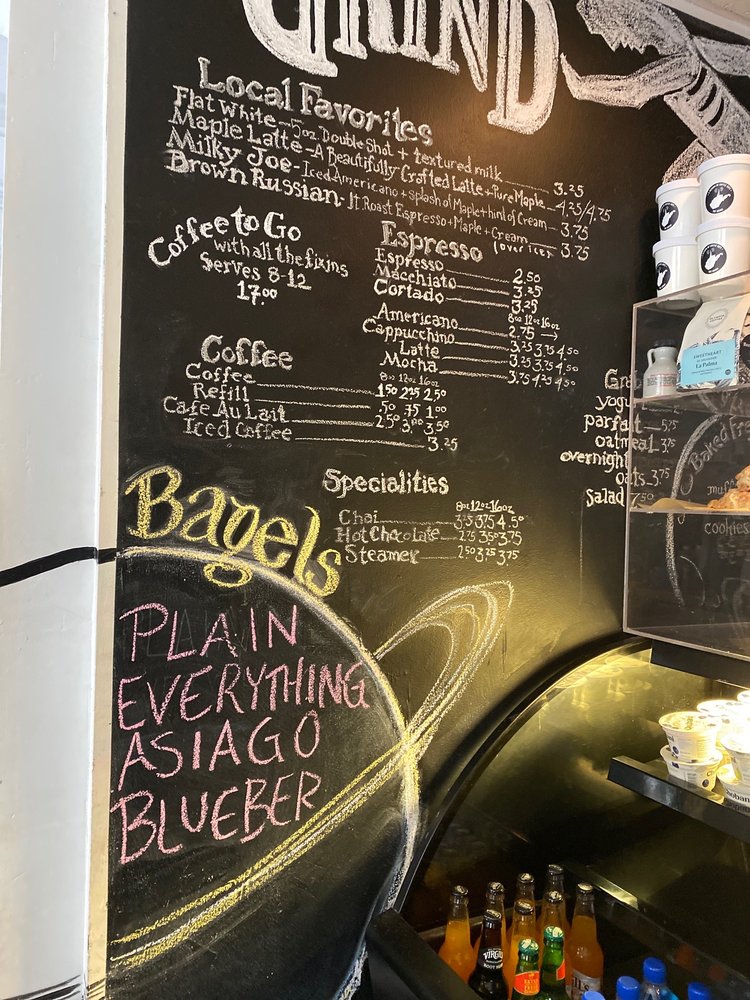 GRIND
Local Favorites
Flat White - 5oz Double Shot + textured milk 3.25
Maple Latte - A Beautifully Crafted Latte + Pure Maple 4.25/4.75
Milky Joe - Iced Americano + splash of Maple + hint of Cream 3.75
Brown Russian - Lt. Roast Espresso + Maple + Cream 3.75
(over ice)
Coffee to Go
with all the fixins
Serves 8-12
17.00
Espresso
Espresso 2.50
Macchiato 3.25
Cortado 3.25
8oz 12oz 16oz
Americano 2.75 →
Cappucchino 3.25 3.75 4.50
Latte 3.25 3.75 4.50
Mocha 3.75 4.25 4.50
Coffee
8oz 12oz 16oz
Coffee 1.50 2.25 2.50
Refill .50 .75 1.00
Cafe Au Lait 2.50 3.00 3.50
Iced Coffee 3.25
Specialities
8oz 12oz 16oz
Chai 3.25 3.75 4.50
Hot Chocolate 2.75 3.50 3.75
Steamer 2.50 3.25 3.75
Bagels
PLAIN
EVERYTHING
ASIAGO
BLUEBER
Grab
yogurt
parfait 5.75
oatmeal 3.75
overnight
oats 3.75
Salad 7.50
Baked Fre
muff
cookies
SWEETHEART
La Palma
VIRGIL'S